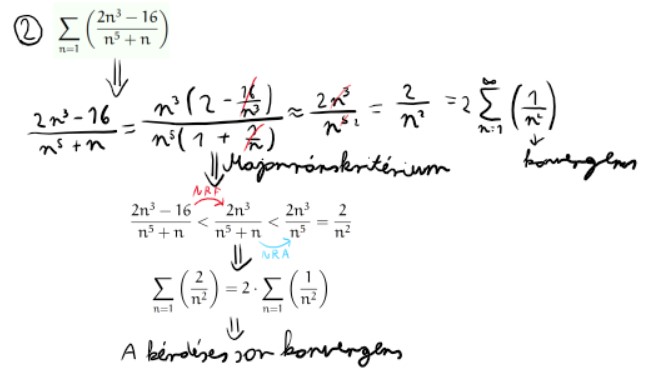 ② ∑_{n=1} ((2n³ − 16)/(n⁵ + n))
⇓
(2n³ − 16)/(n⁵ + n) = (n³(2 − 16/n³))/(n⁵(1 + 2/n)) ≈ 2n³/n⁵ ² = 2/n² = 2 ∑_{n=1}^{∞} (1/n²)
↓
konvergens
⇓ Majoránskritérium
NRF
(2n³ − 16)/(n⁵ + n) < 2n³/(n⁵ + n) < 2n³/n⁵ = 2/n²
NRA
⇓
∑_{n=1} (2/n²) = 2 · ∑_{n=1} (1/n²)
⇓
A kérdéses sor konvergens